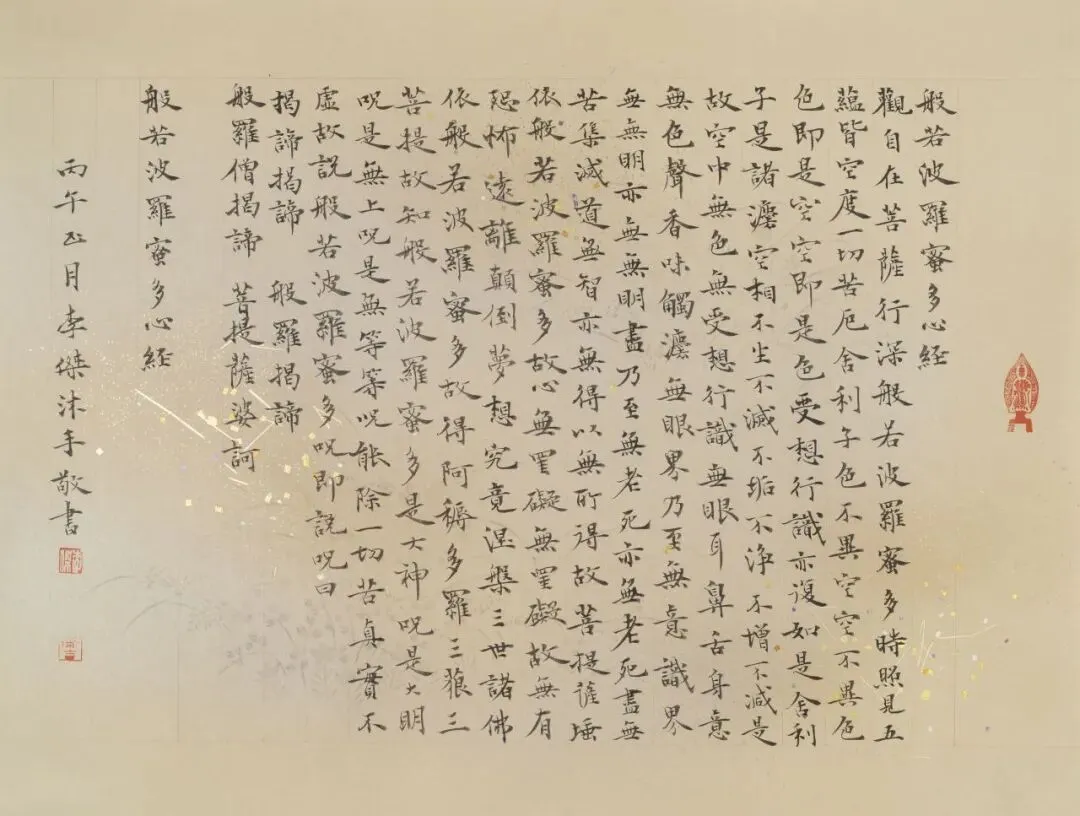 般若波羅蜜多心経
觀自在菩薩行深般若波羅蜜多時照見五
蘊皆空度一切苦厄舍利子色不異空空不異色
色即是空空即是色受想行識亦復如是舍利
子是諸灋空相不生不滅不垢不淨不增不減是
故空中無色無受想行識無眼耳鼻舌身意
無色聲香味觸灋無眼界乃至無意識界
無無明亦無無明盡乃至無老死亦無老死盡無
苦集滅道無智亦無得以無所得故菩提薩埵
依般若波羅蜜多故心無罣礙無罣礙故無有
恐怖遠離顛倒夢想究竟涅槃三世諸佛
依般若波羅蜜多故得阿耨多羅三藐三
菩提故知般若波羅蜜多是大神呪是大明
呪是無上呪是無等等呪能除一切苦真實不
虛故說般若波羅蜜多呪即說呪曰
揭諦揭諦 般羅揭諦
般羅僧揭諦 菩提薩婆訶
般若波羅蜜多心経
丙午正月李傑沐手敬書